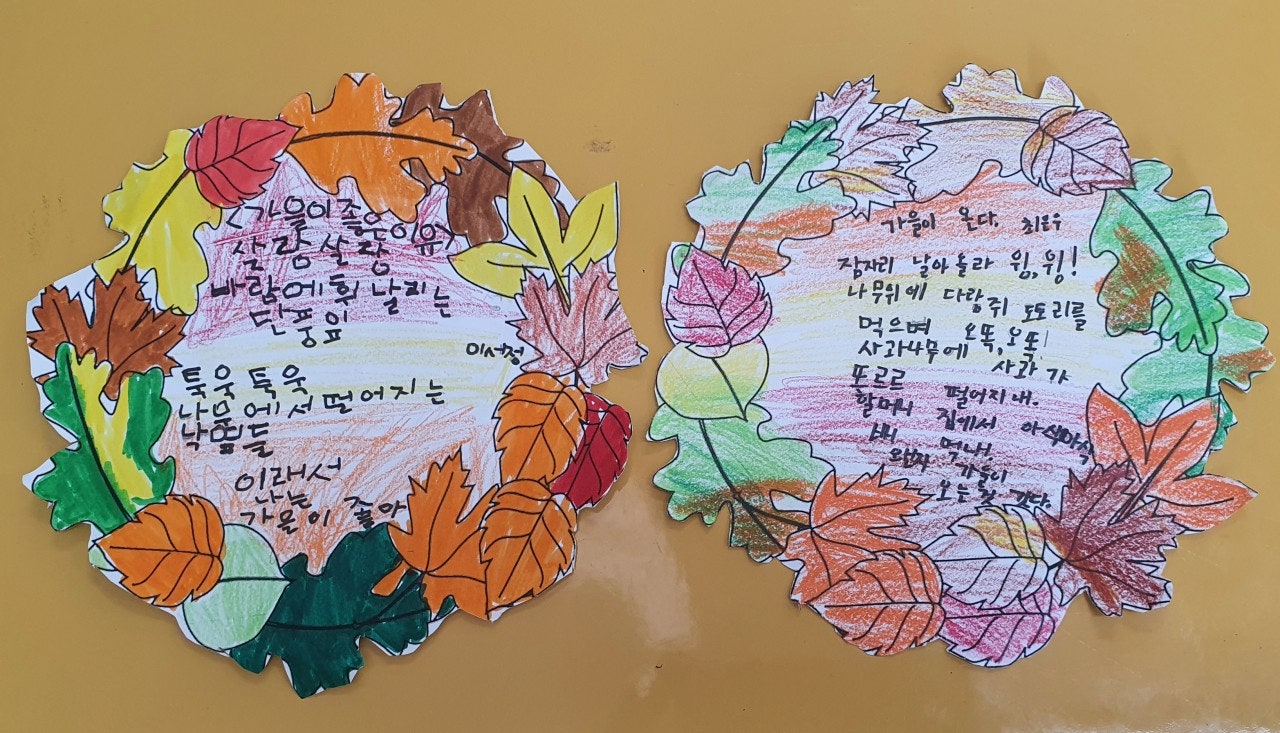 <가을이 좋은 이유>
살랑 살랑
바람에 휘날리는
단풍잎
이서정
툭욱 툭욱
나뭇에서 떨어지는
낙엎들
이래서
나는
가을이 좋아
가을이 온다. 최은우
잠자리 날아 올라 윙, 윙!
나무위에 다람쥐 도토리를
먹으며 오똑, 오똑!
사과나무에 사과가
또르르 떨어지내.
할머니 집에서 아삭아삭
배 먹내.
완자 가을이
오는 것 같다.